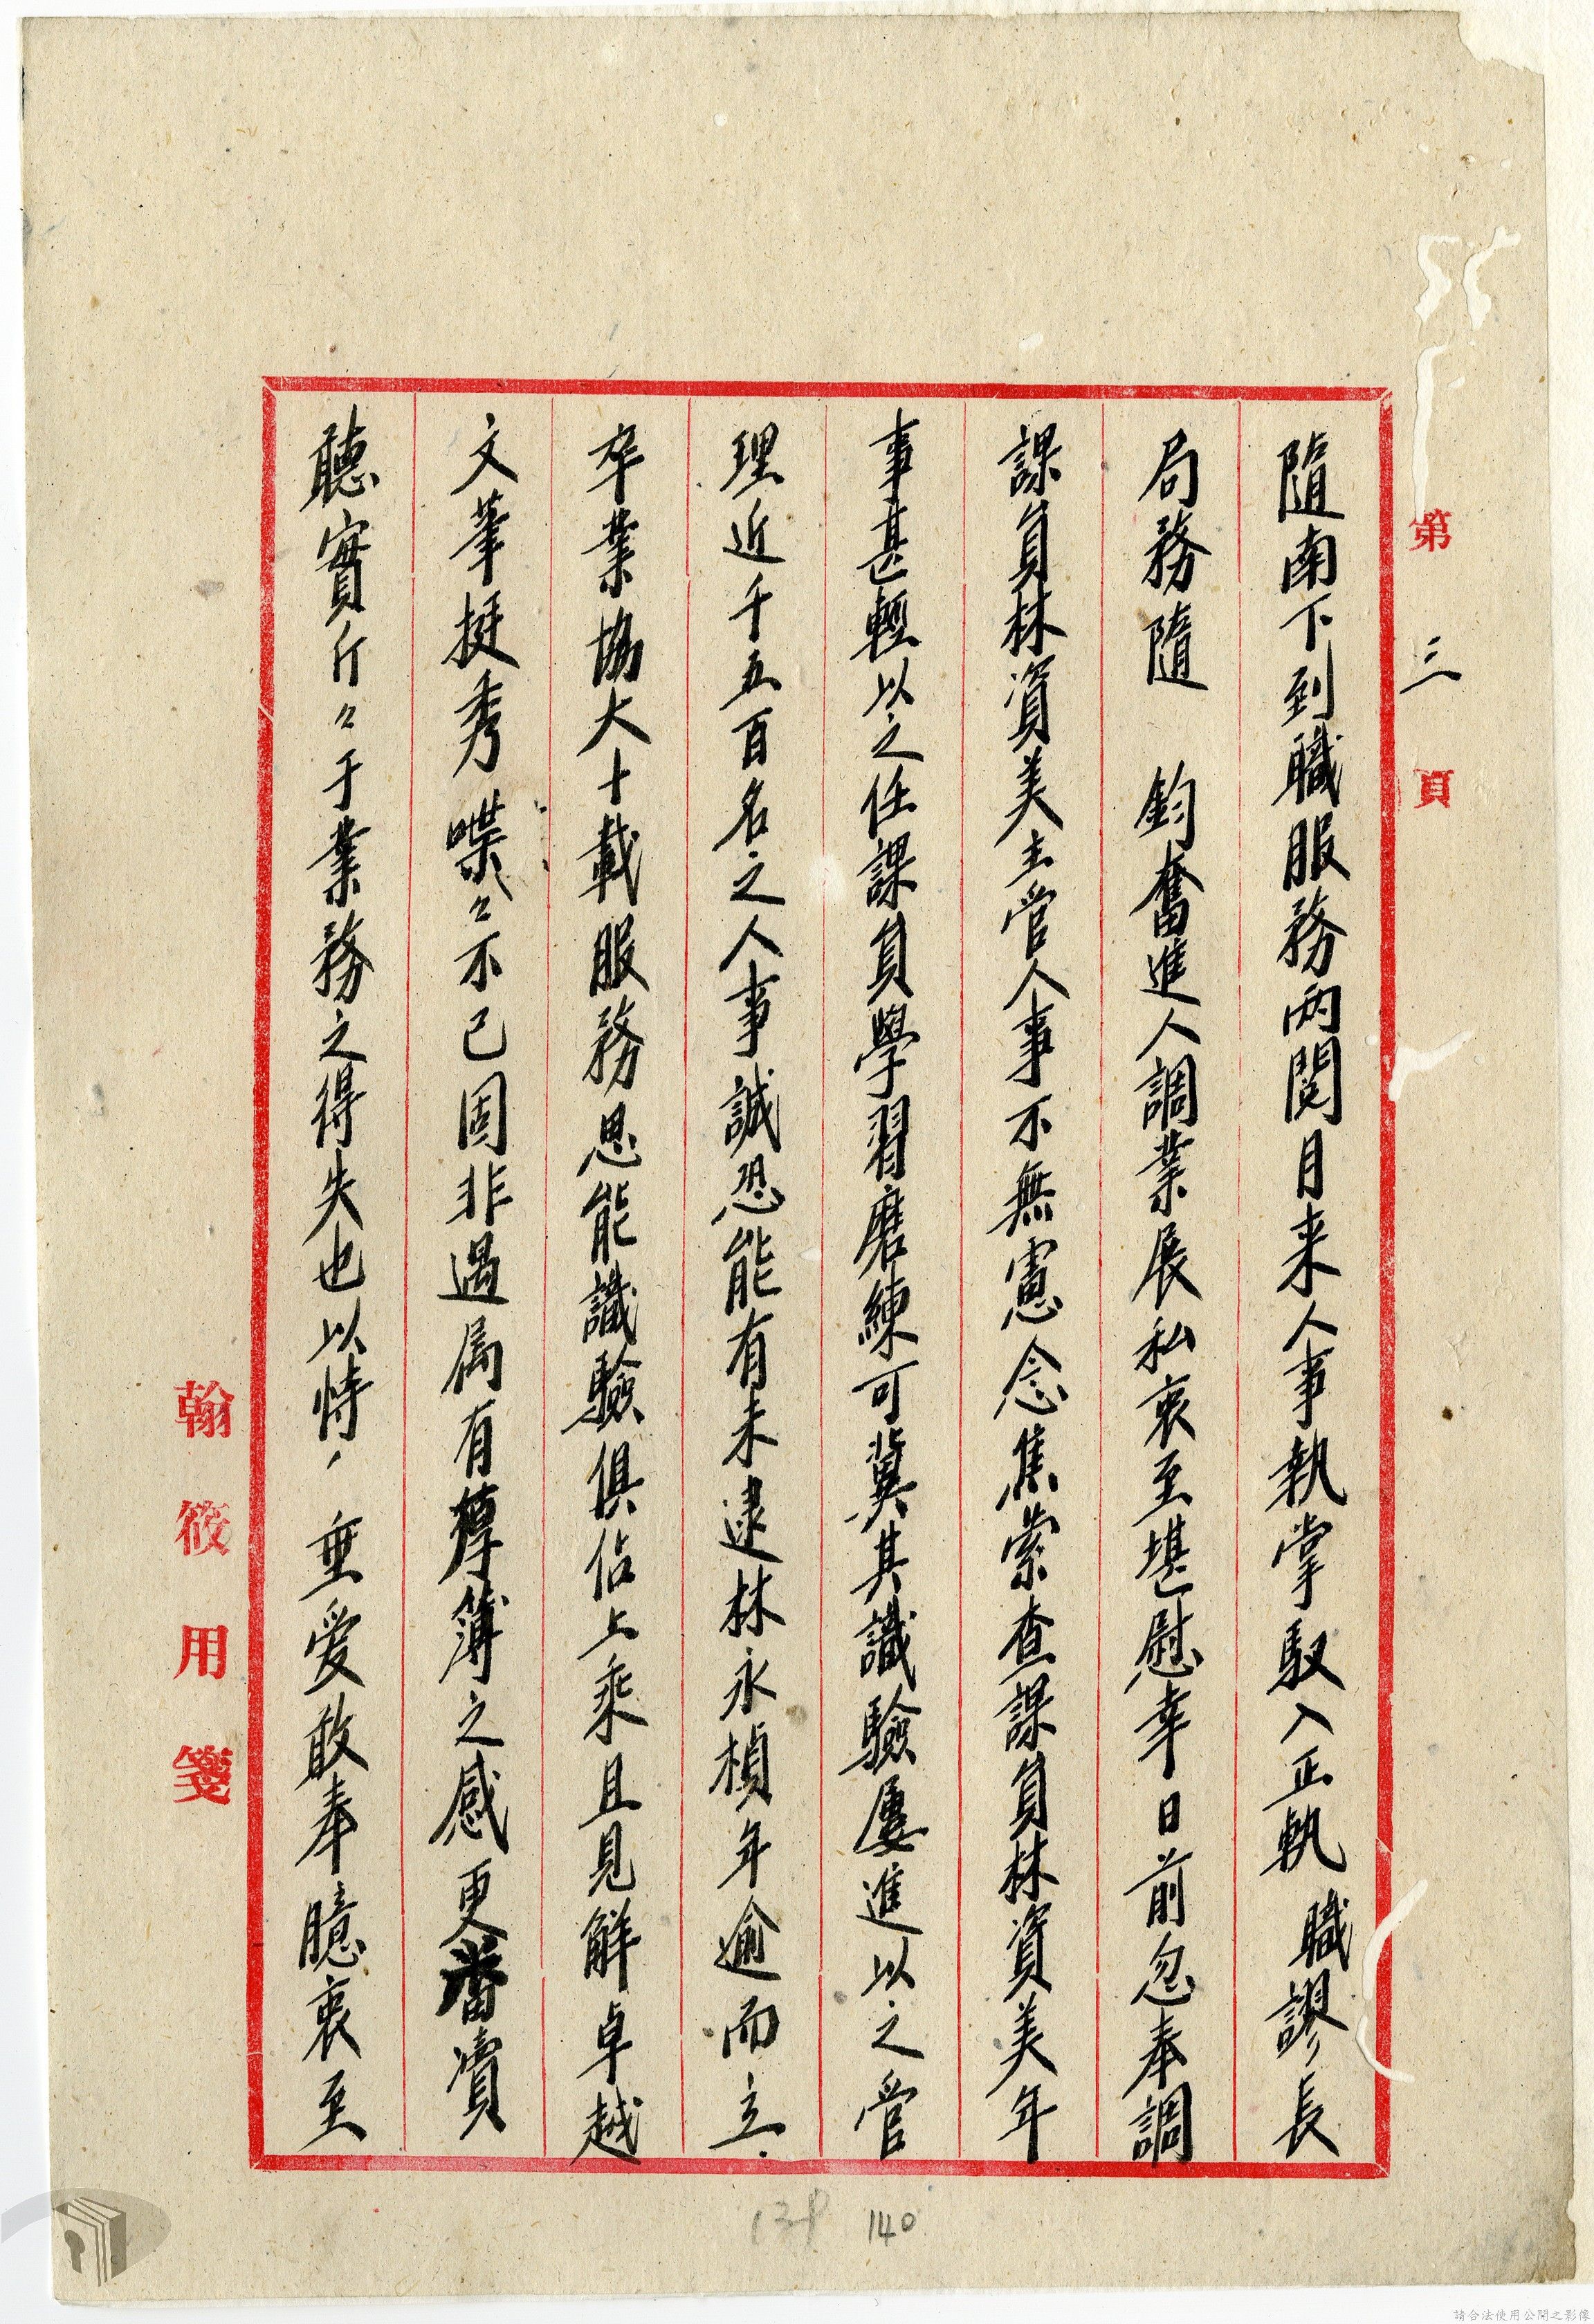 第三頁
隨南下到職服務兩閱月来人事執掌馭入正軌職謬長
局務隨　鈞奮進人調業展私衷至堪慰幸日前忽奉調
課員林資美主管人事不無憲念焦索查課員林資美年
事甚輕以之任課員學習磨練可冀其識驗屢進以之管
理近千五百名之人事誠恐能有未逮林永楨年逾而立
卒業協大十載服務思能識驗俱佔上乘且見解卓越
文筆挺秀喋々不已固非過属有厚薄之感更蕃瀆
聽實斤々于業務之得失也以恃　垂爱敢奉臆衷至
翰筱用箋
138 140
請合法使用公開之影像